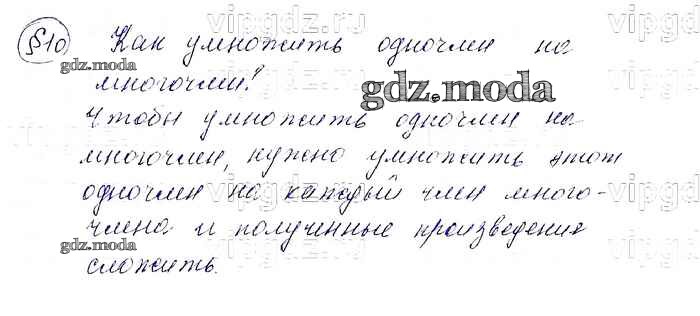 §10 Как умножить одночлен на
многочлен?
Чтобы умножить одночлен на
многочлен, нужно умножить этот
одночлен на каждый член много-
члена и полученные произведения
сложить.
vipgdz.ru
gdz.moda
gdz.moda
vipgdz.ru
vipgdz.ru
gdz.moda
vipgdz.ru